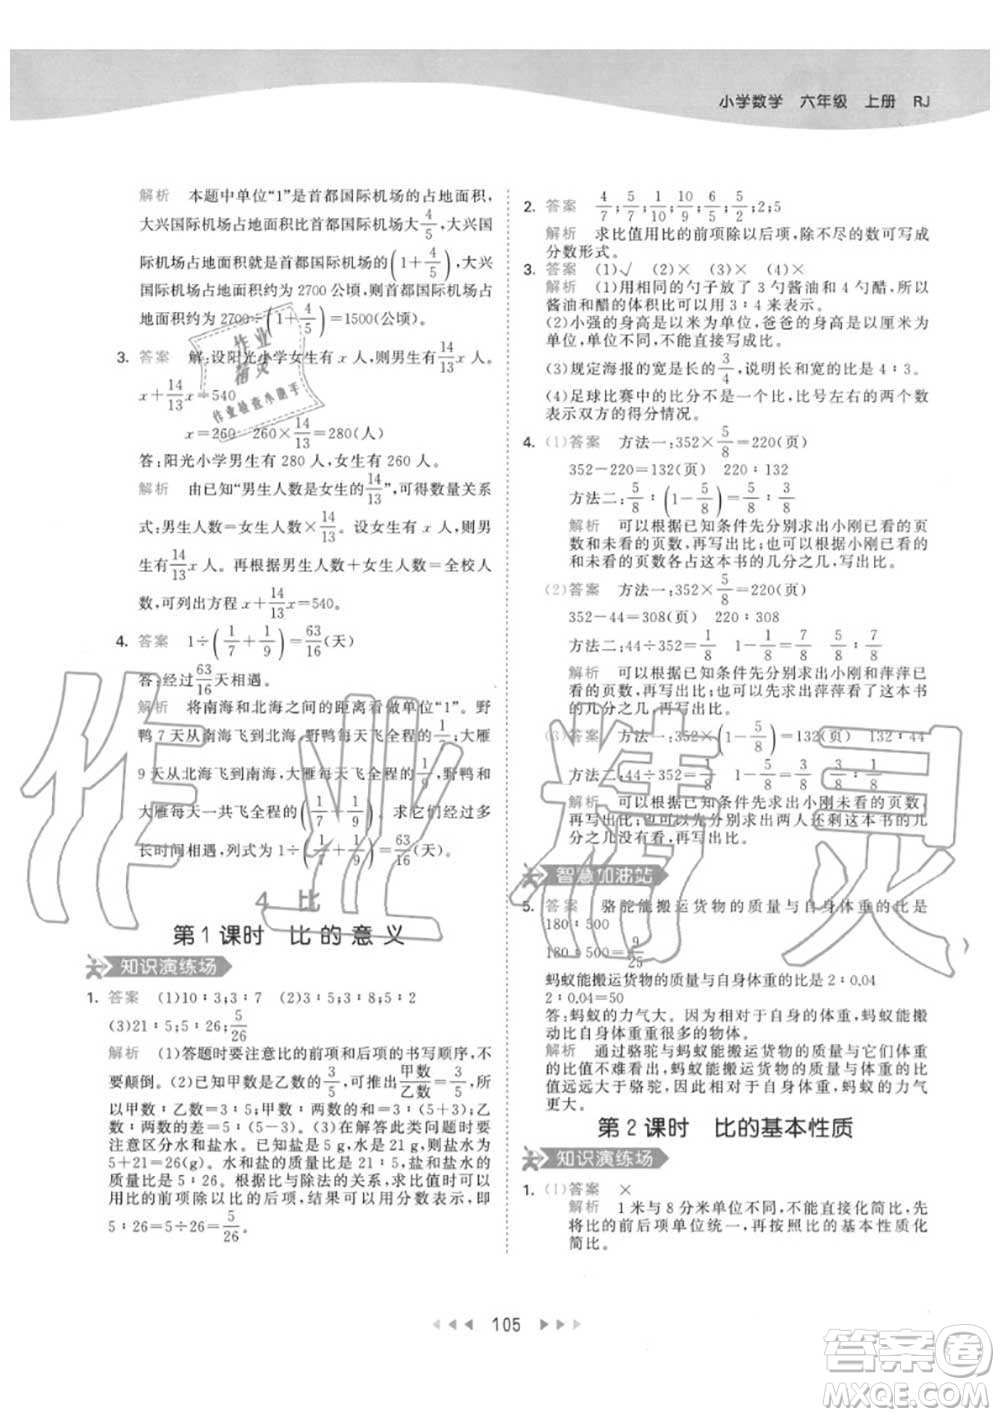 小学数学 六年级 上册 RJ
解析 本题中单位“1”是首都国际机场的占地面积,
大兴国际机场占地面积比首都国际机场大4/5,大兴
国际机场占地面积就是首都国际机场的(1+4/5),大兴
国际机场占地面积为2700公顷,则首都国际机场的
占地面积约为2700÷(1+4/5)=1500(公顷).
3. 答案 解:设阳光小学女生有x人,则男生有14/13x人.
x+14/13x=540
x=260 260×14/13=280(人)
答:阳光小学男生有280人,女生有260人.
解析 由已知“男生人数是女生的14/13”,可得数量关系
式:男生人数=女生人数×14/13。设女生有x人,则男
生有14/13x人。根据男生人数+女生人数=全校人
数,可列出方程x+14/13x=540。
4. 答案 1÷(1/7+1/9)=63/16(天)
答:经过63/16天相遇。
解析 将南海和北海之间的距离看做单位“1”。野
鸭7天从南海飞到北海,野鸭每天飞全程的1/7;大雁
9天从北海飞到南海,大雁每天飞全程的1/9,野鸭和
大雁每天一共飞全程的(1/7+1/9)。求它们经过多
长时间相遇,列式为1÷(1/7+1/9)=63/16(天)。
4 比
第1课时 比的意义
知识演练场
1. 答案 (1)10∶3;3∶7 (2)5∶3;8;5∶2
(3)21∶5;5∶26;5/26
解析 (1)答题时要注意比的前项和后项的书写顺序,不
要颠倒。(2)已知甲数是乙数的5/3,可推出甲数/乙数=5/3,所
以甲数∶乙数=5∶3,甲数∶两数的和=5∶(5+3),甲
数∶两数的差=5∶(5-3)。(3)在解答此类问题时要
注意区分水和盐水。已知盐是5 g,水是21 g,则盐水是
5+21=26(g)。水和盐的质量比是21∶5,盐和盐水的质
量比是5∶26。根据比与除法的关系,求比值时可以用
比的前项除以比的后项,结果可以用分数表示,即
5∶26=5÷26=5/26。
2. 答案 4/7;7/10;10/9;6/5;5/2;2;5
解析 求比值用比的前项除以后项,除不尽的数可写成
分数形式。
3. 答案 (1)√ (2)× (3)× (4)×
解析 (1)用相同的勺子放了3勺酱油和4勺醋,所以
酱油和醋的体积比可以用3∶4来表示。
(2)小强的身高是以米为单位,爸爸的身高是以厘米为
单位,单位不同,不能直接写成比。
(3)规定海报的宽是长的3/4,说明长和宽的比是4∶3。
(4)足球比赛中的比分不是比,比号左右的两个数
表示双方的得分情况。
4. (1)答案 方法一:352×5/8=220(页)
352-220=132(页) 220∶132
方法二:5/8∶(1-5/8)=5/8∶3/8
解析 可以根据已知条件先分别求出小刚已看的页
数和未看的页数,再写出比。也可以先分别求出已看
和未看的页数各占这本书的几分之几,再写出比。
(2)答案 方法一:352×5/8=220(页)
352-44=308(页) 220∶308
方法二:44÷352=1/8 5/8∶(1-1/8)=5/8∶7/8
解析 可以根据已知条件先分别求出小刚和萍萍已
看的页数,再写出比。也可以先求出萍萍看了这本书
的几分之几,再写出比。
(3)答案 方法一:352×(1-5/8)=132(页) 132∶44
方法二:44÷352=1/8 (1-5/8)∶1/8=3/8∶1/8
解析 可以根据已知条件先求出小刚未看的页数,
再写出比。也可以分别求出两人还剩这本书的几分
之几没有看,再写出比。
智慧加油站
5. 答案 骆驼能搬运货物的质量与自身体重的比是
180∶500
180∶500=9/25
蚂蚁能搬运货物的质量与自身体重的比是2∶0.04
2∶0.04=50
答:蚂蚁的力气大。因为相对于自身的体重,蚂蚁能搬
动比自身体重重很多的物体。
解析 通过骆驼与蚂蚁能搬运货物的质量与它们自身
体重的比值不难看出,蚂蚁能搬运货物的质量与体重的比
值远远大于骆驼,所以相对于自身的体重,蚂蚁的力气
更大。
第2课时 比的基本性质
知识演练场
1. (1)答案 ×
解析 1米与8分米单位不同,不能直接化简比,先
将比的前后项单位统一,再按照比的基本性质化
简比。
105
作业精灵
作业检查小助手
作业精灵
答案圈
MXQE.COM